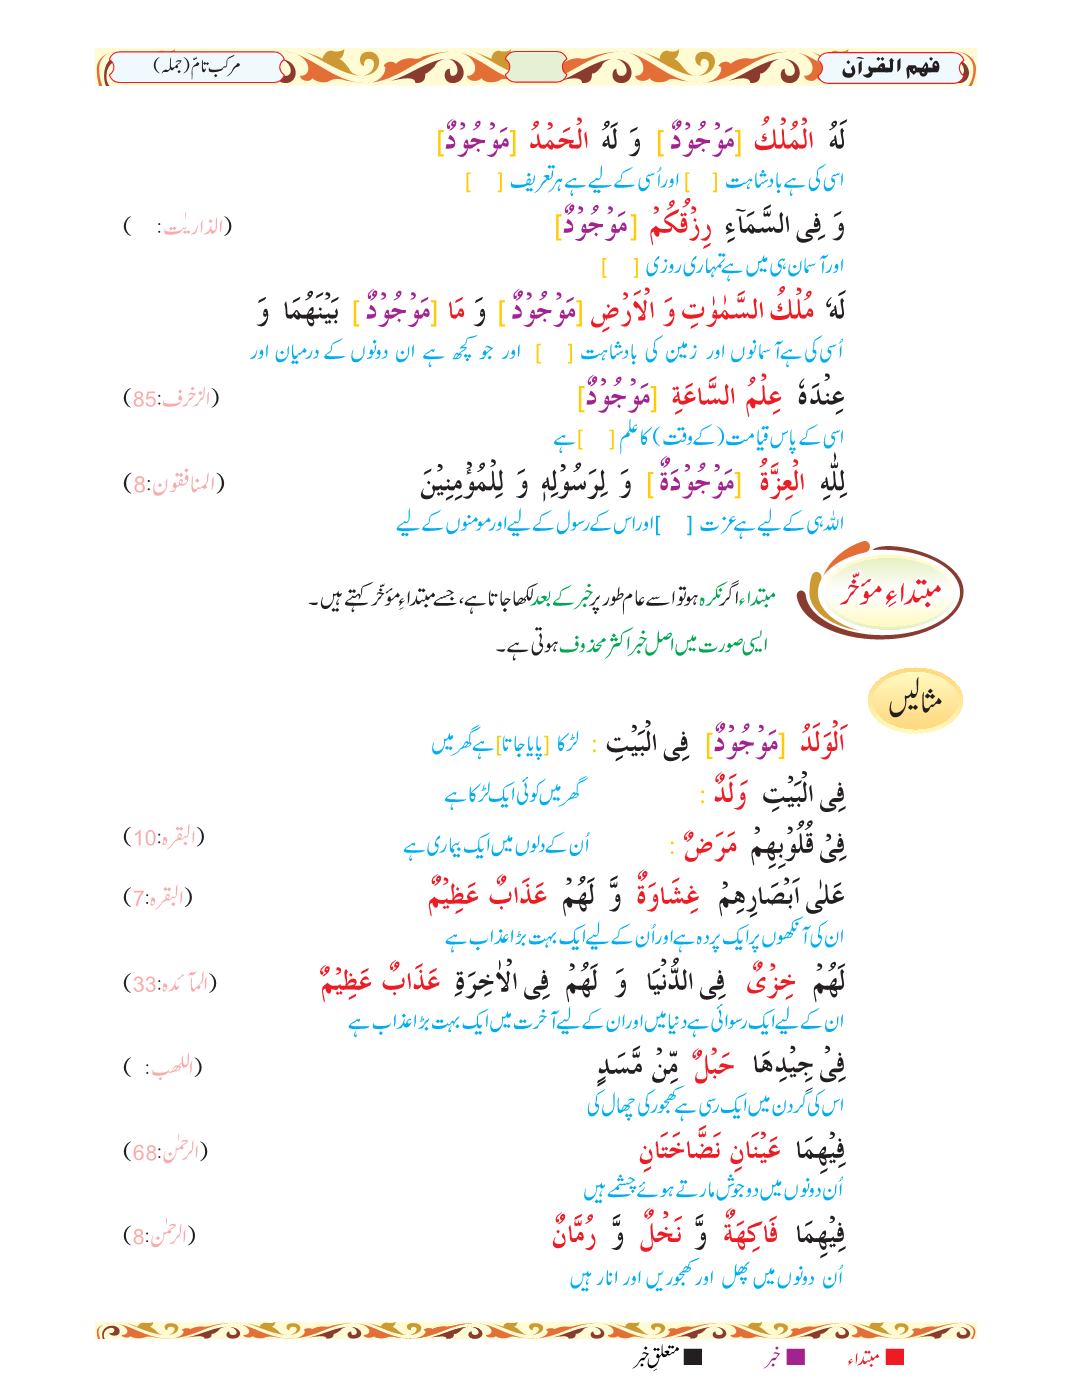 فهم القرآن
مرکب تامّ (جملہ)
لَهُ الْمُلْكُ [مَوْجُوْدٌ] وَ لَهُ الْحَمْدُ [مَوْجُوْدٌ]
اسی کی ہے بادشاہت [ ] اور اُسی کے لیے ہے ہر تعریف [ ]
وَ فِی السَّمَآءِ رِزْقُكُمْ [مَوْجُوْدٌ] (الذاریٰت: )
اور آسمان ہی میں ہے تمہاری روزی [ ]
لَهٗ مُلْكُ السَّمٰوٰتِ وَ الْاَرْضِ [مَوْجُوْدٌ] وَ مَا [مَوْجُوْدٌ] بَيْنَهُمَا وَ
اُسی کی ہے آسمانوں اور زمین کی بادشاہت [ ] اور جو کچھ ہے ان دونوں کے درمیان اور
عِنْدَهٗ عِلْمُ السَّاعَةِ [مَوْجُوْدٌ] (الزخرف:85)
اسی کے پاس قیامت (کے وقت) کا علم [ ] ہے
لِلّٰهِ الْعِزَّةُ [مَوْجُوْدَةٌ] وَ لِرَسُوْلِهٖ وَ لِلْمُؤْمِنِيْنَ (المنافقون:8)
اللہ ہی کے لیے ہے عزت [ ] اور اس کے رسول کے لیے اور مومنوں کے لیے
مبتداءِ مؤخّر
مبتداء اگر نکرہ ہو تو اسے عام طور پر خبر کے بعد لکھا جاتا ہے، جسے مبتداءِ مؤخّر کہتے ہیں۔
ایسی صورت میں اصل خبر اکثر محذوف ہوتی ہے۔
مثالیں
اَلْوَلَدُ [مَوْجُوْدٌ] فِی الْبَيْتِ : لڑکا [پایا جاتا] ہے گھر میں
فِی الْبَيْتِ وَلَدٌ : گھر میں کوئی ایک لڑکا ہے
فِیْ قُلُوْبِهِمْ مَرَضٌ : اُن کے دلوں میں ایک بیماری ہے (البقرہ:10)
عَلٰى اَبْصَارِهِمْ غِشَاوَةٌ وَّ لَهُمْ عَذَابٌ عَظِيْمٌ (البقرہ:7)
ان کی آنکھوں پر ایک پردہ ہے اور اُن کے لیے ایک بہت بڑا عذاب ہے
لَهُمْ خِزْیٌ فِی الدُّنْيَا وَ لَهُمْ فِی الْاٰخِرَةِ عَذَابٌ عَظِيْمٌ (المآئدہ:33)
ان کے لیے ایک رسوائی ہے دنیا میں اور ان کے لیے آخرت میں ایک بہت بڑا عذاب ہے
فِیْ جِيْدِهَا حَبْلٌ مِّنْ مَّسَدٍ (اللھب: )
اس کی گردن میں ایک رسی ہے کھجور کی چھال کی
فِيْهِمَا عَيْنَانِ نَضَّاخَتَانِ (الرحمٰن:68)
اُن دونوں میں دو جوش مارتے ہوئے چشمے ہیں
فِيْهِمَا فَاكِهَةٌ وَّ نَخْلٌ وَّ رُمَّانٌ (الرحمٰن:8)
اُن دونوں میں پھل اور کھجوریں اور انار ہیں
مبتداء خبر متعلق خبر